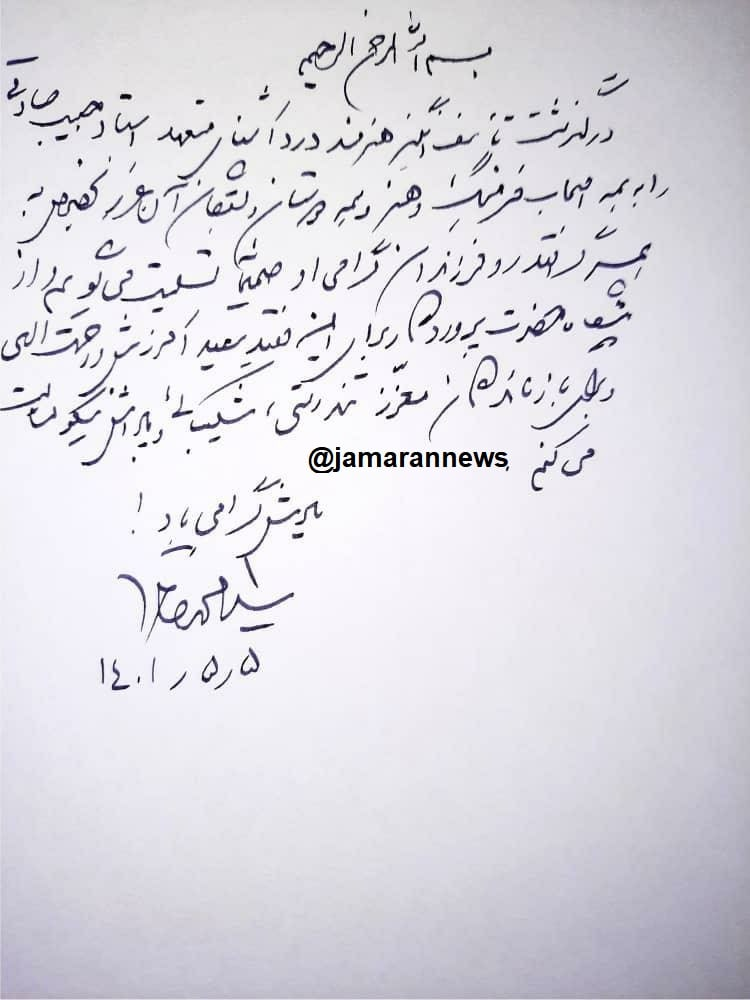 بسم الله الرحمن الرحیم
درگذشت تأسف‌انگیز هنرمند درد آشنای متعهد استاد حبیب صادقی
را به همه اصحاب فرهنگ و هنر و همه دوستان و آن عزیز بخصوص به
همسر گرانقدر و فرزندان گرامی او صمیمانه تسلیت می‌گویم و از
پیشگاه حضرت پروردگار برای این فقید سعید آمرزش و رحمت الهی
و برای بازماندگان معزّز تندرستی، شکیبائی و پاداش نیکو مسألت
می‌کنم.
@jamarannews
یادش گرامی باد!
سید محمد خاتمی
۱۴۰۱ر۵ر۵